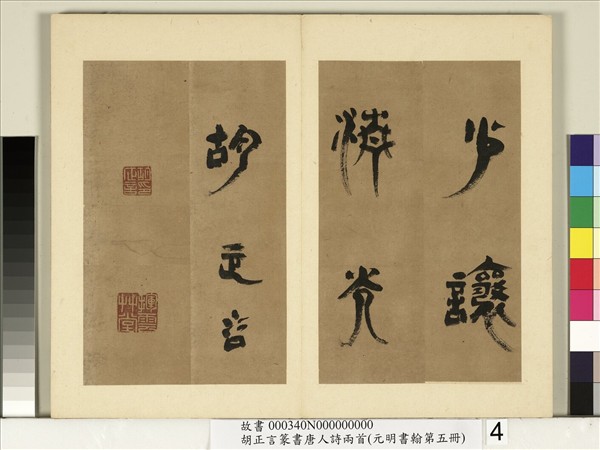 少讓
光
胡正言
故書 000340N000000000
胡正言篆書唐人詩兩首(元明書翰第五冊)
4